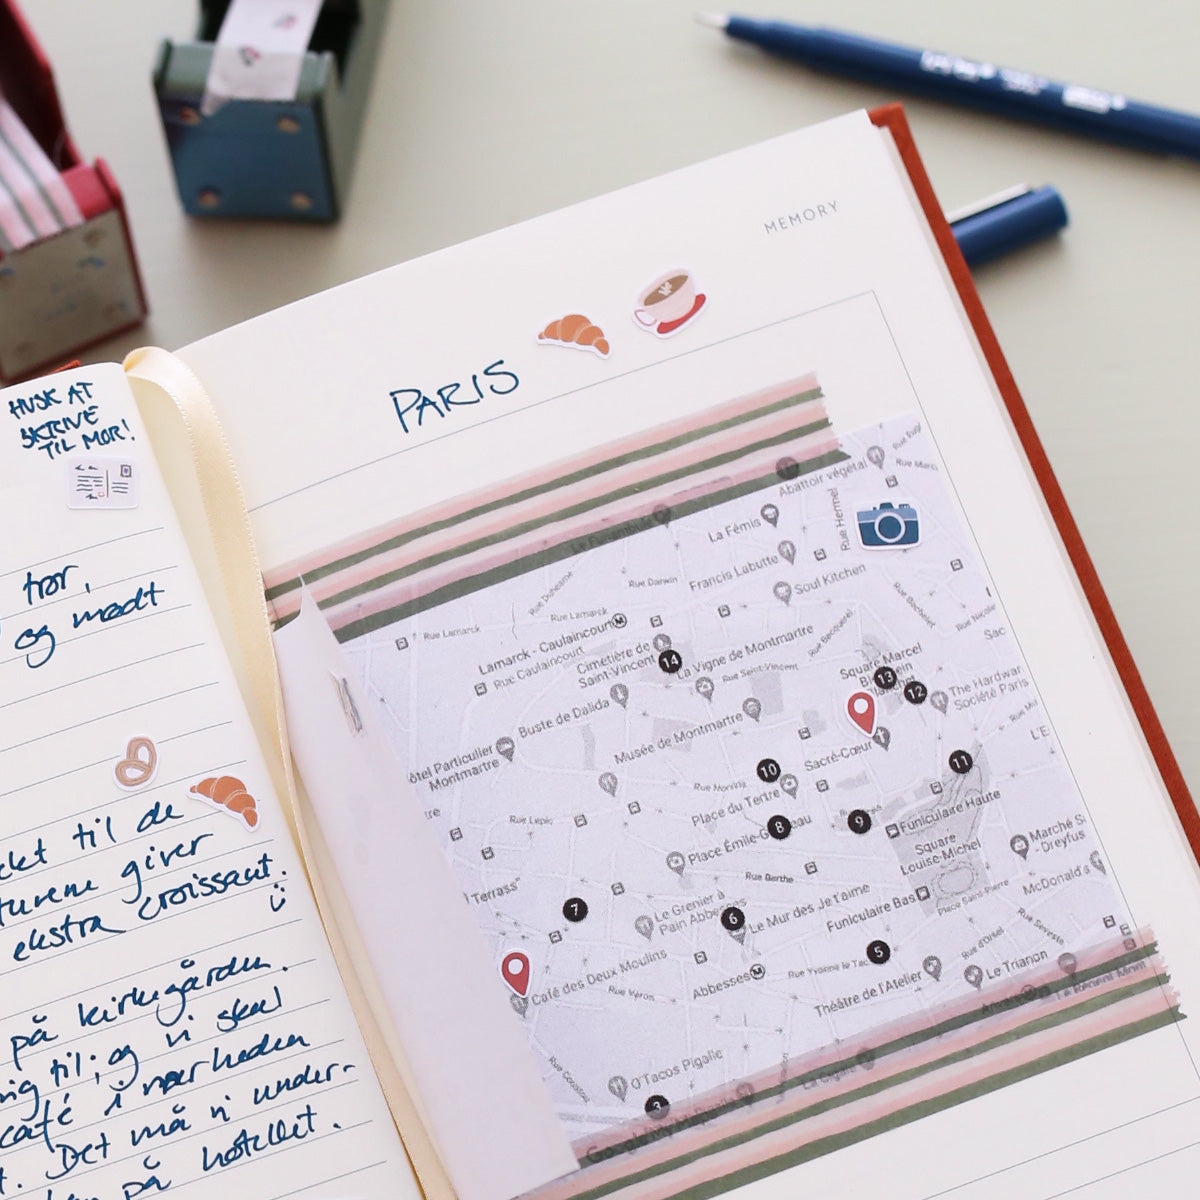 HUSK AT
SKRIVE
TIL MOR!
og mødt
til de
giver
ekstra croissant.
på kirkegården.
til; og vi skal
café i nærheden
Det må vi under-
på hotellet.
MEMORY
PARIS
Abattoir végétal
Rue Hermel
La Fémis
Francis Labutte
Soul Kitchen
Rue Duhesme
Rue Darwin
Rue Lamarck
Rue Lamarck
Lamarck - Caulaincourt
Rue Caulaincourt
Cimetière de
Saint-Vincent
14
La Vigne de Montmartre
Rue Saint-Vincent
Rue Becquerel
Rue Bachelet
Rue Nicolet
Square Marcel
13
12
The Hardware
Société Paris
Buste de Dalida
Musée de Montmartre
Sacré-Cœur
11
Hôtel Particulier
Montmartre
10
Rue Norvins
Place du Tertre
Rue Lepic
8
9
Place Émile-Goudeau
Funiculaire Haute
Square
Louise-Michel
Marché S
- Dreyfus
McDonald's
Rue Berthe
Terrass"
7
Le Grenier à
Pain Abbesses
6
Le Mur des Je t'aime
Funiculaire Bas
Place Saint-Pierre
5
Café des Deux Moulins
Rue Véron
Abbesses
Rue Yvonne le Tac
Théâtre de l'Atelier
Rue d'Orsel
Le Trianon
Rue Seveste
Rue Coustou
O'Tacos Pigalle
La Cigale
3
Google My Maps